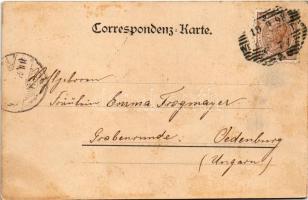 Correspondenz-Karte.
Wohlgeboren
Fräulein Emma Frogmayer
Grabenrunde. Oedenburg
(Ungarn)